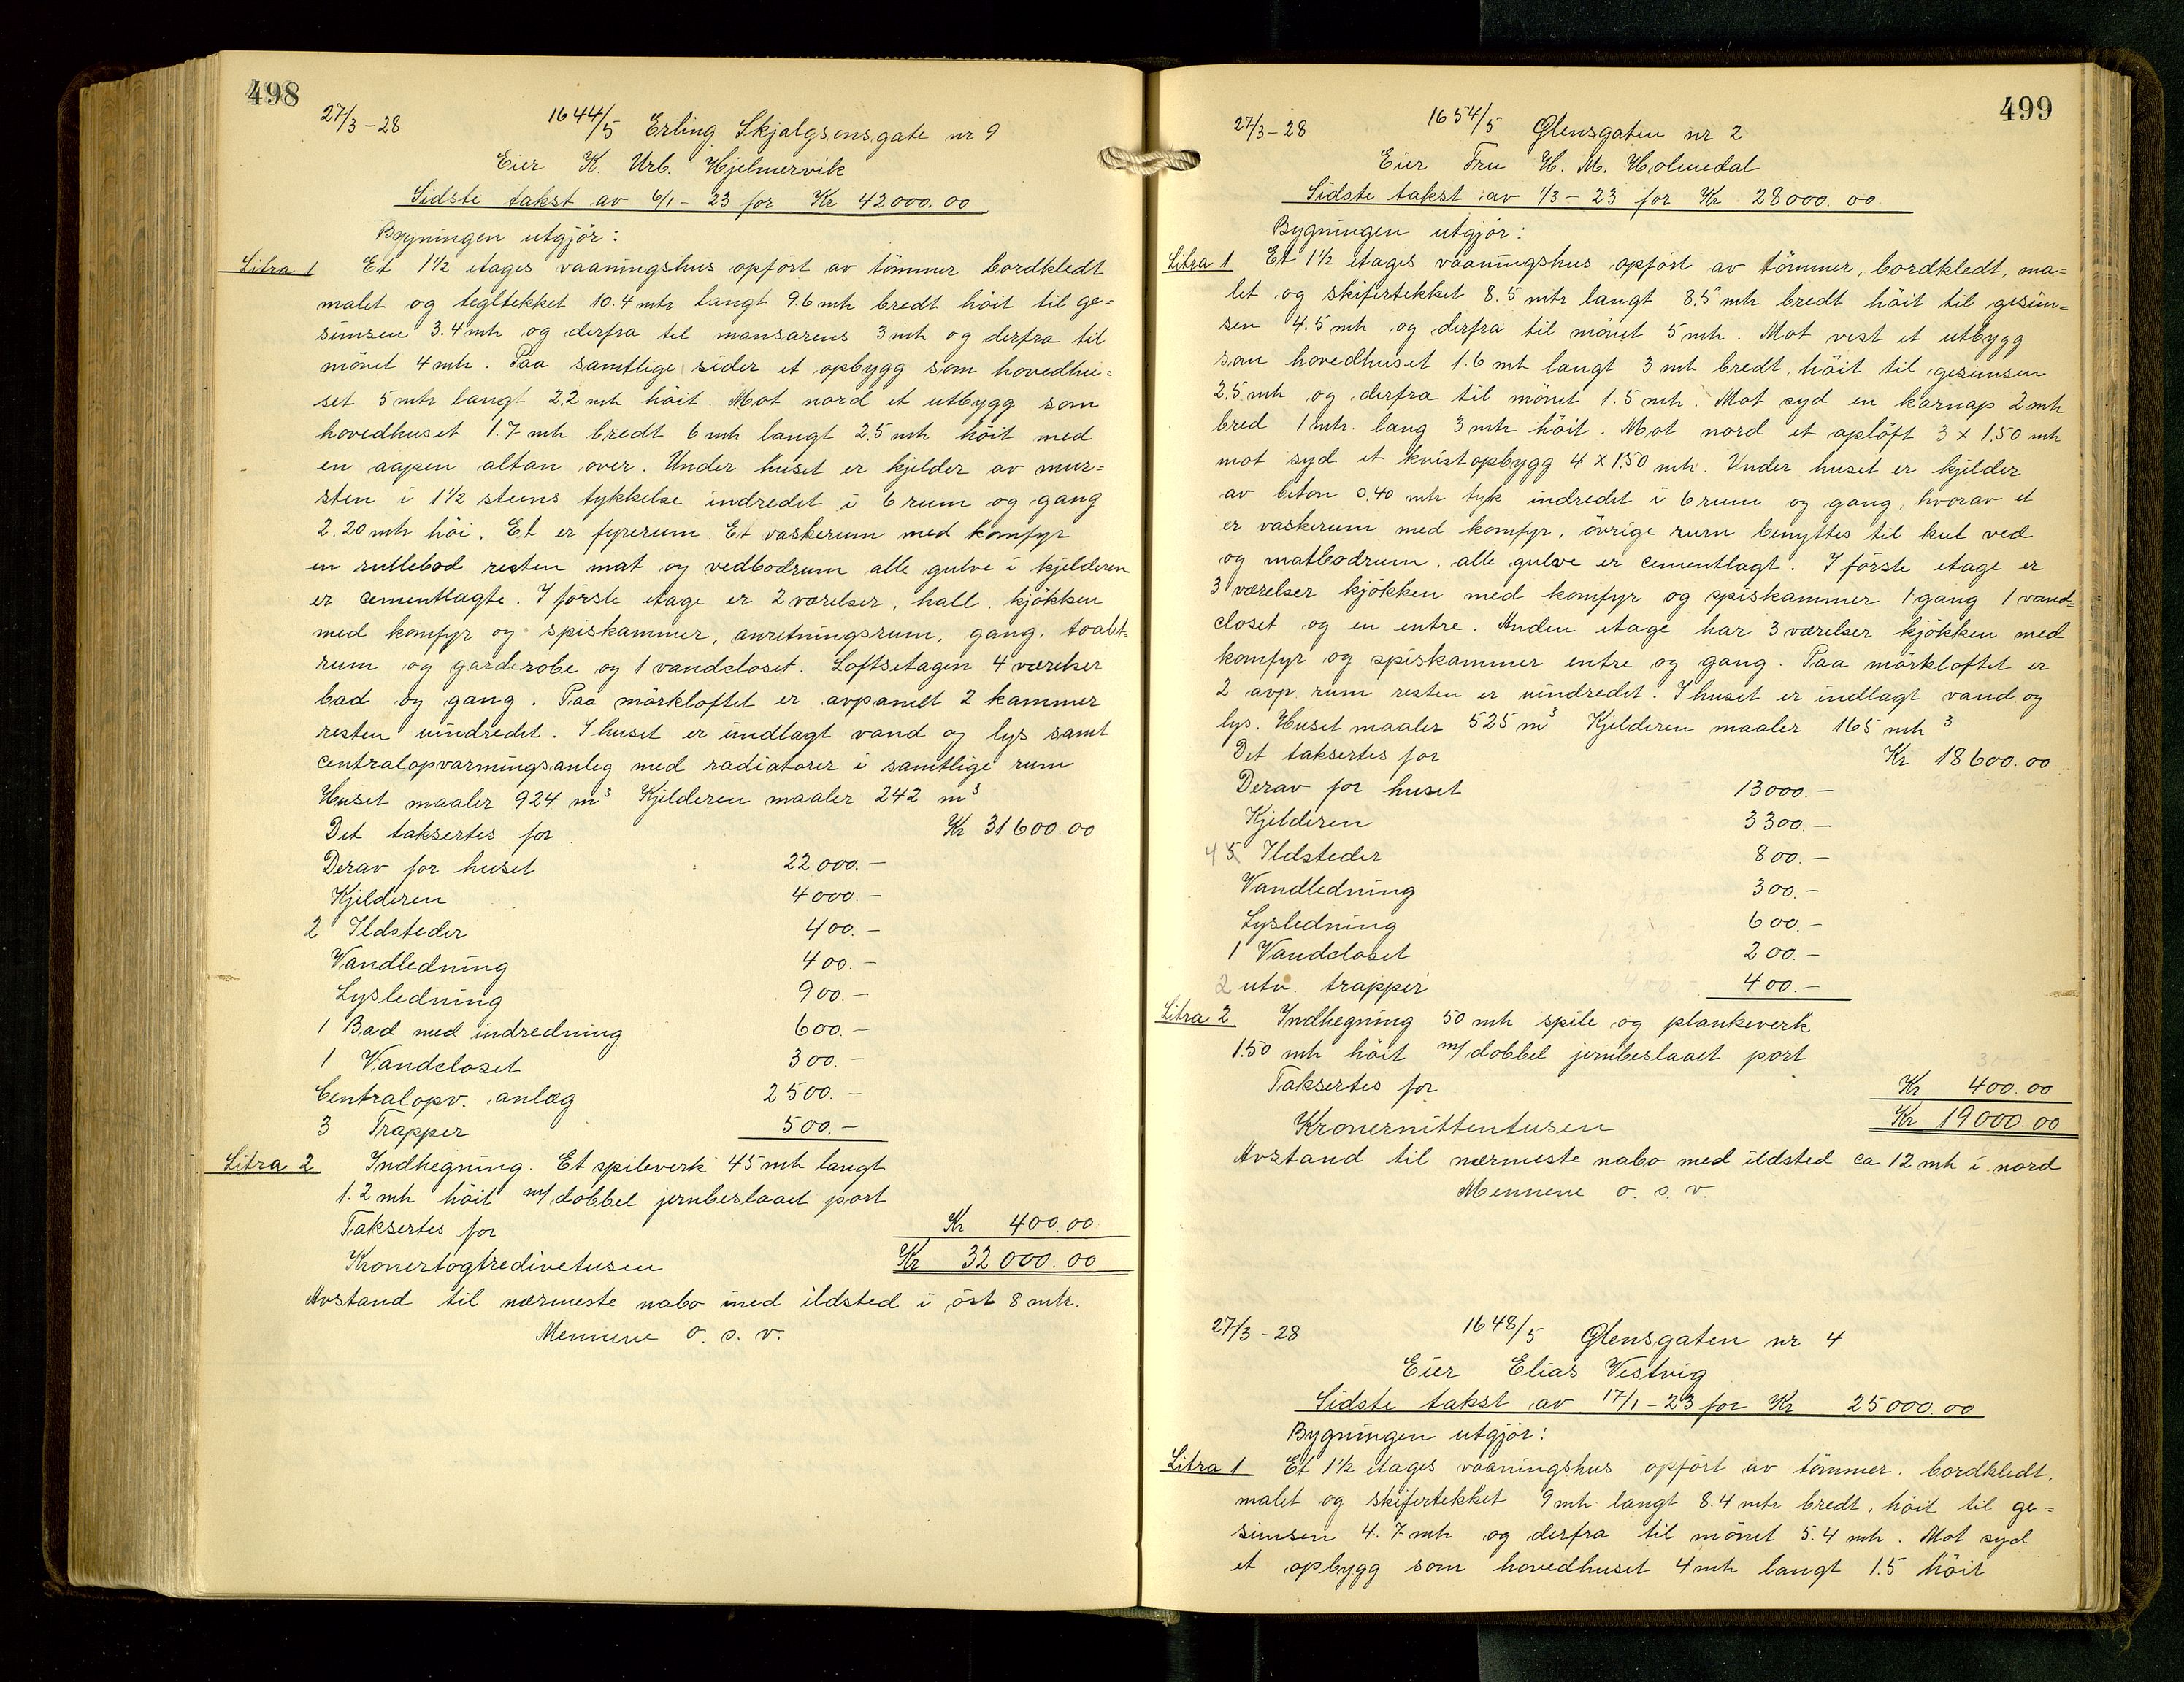 498
27/3-28 1644/5 Erling Skjalgsonsgate nr 9
Eier K. Urb. Hjelmervik
Sidste takst av 6/1-23 for Kr 42000.00
Bygningen utgjör:
Litra 1 Et 1½ etages vaaningshus opfört av tömmer bordkledt
malet og tegltekket 10.4 mtr langt 9.6 mtr bredt höit til ge=
simsen 3.4 mtr og derfra til mansarens 3 mtr og derfra til
mönet 4 mtr. Paa samtlige sider et opbygg som hovedhu=
set 5 mtr langt 2.2 mtr höit. Mot nord et utbygg som
hovedhuset 1.7 mtr bredt 6 mtr langt 2.5 mtr höit med
en aapen altan over. Under huset er kjelder av mur=
sten i 1½ stens tykkelse indredet i 6 rum og gang
2.20 mtr höi. Et er fyrerum. Et vaskerum med komfyr
en rullebod resten mat og vedbodrum alle gulve i kjelderen
er cementlagte. I förste etage er 2 værelser, hall, kjökken
med komfyr og spiskammer, anretningsrum, gang, toalet-
rum og garderobe og 1 vandcloset. Loftsetagen 4 værelser
bad og gang. Paa mörkloftet er avpanelt 2 kammer
resten uindredet. I huset er indlagt vand og lys samt
centralopvarmingsanleg med radiatorer i samtlige rum
Huset maaler 924 m³ Kjelderen maaler 242 m³
Det taksertes for Kr 31600.00
Derav for huset 22000.-
Kjelderen 4000.-
2 Ildsteder 400.-
Vandledning 400.-
Lysledning 900.-
1 Bad med indredning 600.-
1 Vandcloset 300.-
Centralopv. anlæg 2500.-
3 Trapper 500.-
Litra 2 Indhegning. Et spileverk 45 mtr langt
1.2 mtr höit m/dobbel jernbeslaaet port
Taksertes for Kr 400.00
Kronertogtredivetusen Kr 32000.00
Avstand til nærmeste nabo med ildsted i öst 8 mtr.
Mennene o. s. v.
499
27/3-28 1654/5 Glensgaten nr 2
Eier Fru H. M. Holmedal
Sidste takst av 1/3-23 for Kr 28000.00
Bygningen utgjör:
Litra 1 Et 1½ etages vaaningshus opfört av tömmer, bordkledt, ma=
let og skifertekket 8.5 mtr langt 8.5 mtr bredt höit til gesim=
sen 4.5 mtr og derfra til mönet 5 mtr. Mot vest et utbygg
som hovedhuset 1.6 mtr langt 3 mtr bredt, höit til gesimsen
2.5 mtr og derfra til mönet 1.5 mtr. Mot syd en karnap 2 mtr
bred 1 mtr. lang 3 mtr höit. Mot nord et oplöft 3 x 1.50 mtr
mot syd et kvistopbygg 4 x 1.50 mtr. Under huset er kjelder
av beton 0.40 mtr tyk indredet i 6 rum og gang, hvorav et
er vaskerum med komfyr, övrige rum benyttes til kul ved
og matbodrum, alle gulve er cementlagt. I förste etage er
3 værelser kjökken med komfyr og spiskammer 1 gang 1 vand=
closet og en entre. Anden etage har 3 værelser kjökken med
komfyr og spiskammer entre og gang. Paa mörkloftet er
2 avp. rum resten er uindredet. I huset er indlagt vand og
lys. Huset maaler 525 m³ Kjelderen maaler 165 mtr ³
Det taksertes for Kr 18600.00
Derav for huset 13000.-
Kjelderen 3300.-
4 5 Ildsteder 800.-
Vandledning 300.-
Lysledning 600.-
1 Vandcloset 200.-
2 utv. trapper 400.-
Litra 2 Indhegning 50 mtr spile og plankeverk
1.50 mtr höit m/dobbel jernbeslaaet port
Taksertes for Kr 400.00
Kronernittentusen Kr 19000.00
Avstand til nærmeste nabo med ildsted ca 12 mtr i nord
Mennene o. s. v.
27/3-28 1648/5 Glensgaten nr 4
Eier Elias Vestvig
Sidste takst av 17/1-23 for Kr 25000.00
Bygningen utgjör:
Litra 1 Et 1½ etages vaaningshus opfört av tömmer. bordkledt,
malet og skifertekket 9 mtr langt 8.4 mtr bredt, höit til ge=
simsen 4.7 mtr og derfra til mönet 5.4 mtr. Mot syd
et opbygg som hovedhuset 4 mtr langt 1.5 höit